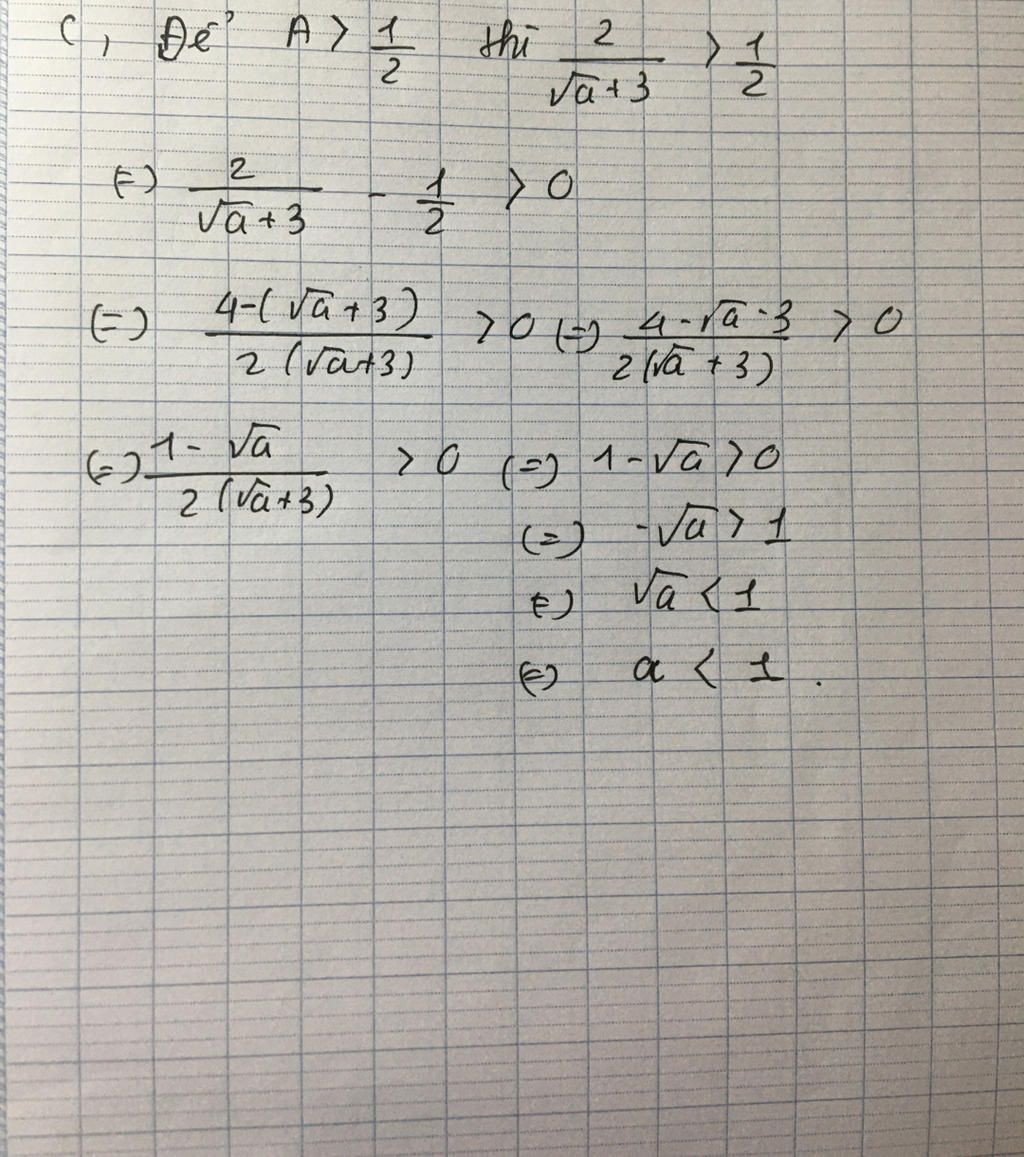 c, Để A > 1/2 thì 2/(√a+3) > 1/2
(=) 2/(√a+3) - 1/2 > 0
(=) (4-(√a+3))/(2(√a+3)) > 0 (=) (4-√a-3)/(2(√a+3)) > 0
(=) (1-√a)/(2(√a+3)) > 0 (=) 1-√a > 0
(=) -√a > 1
(=) √a < 1
(=) a < 1.